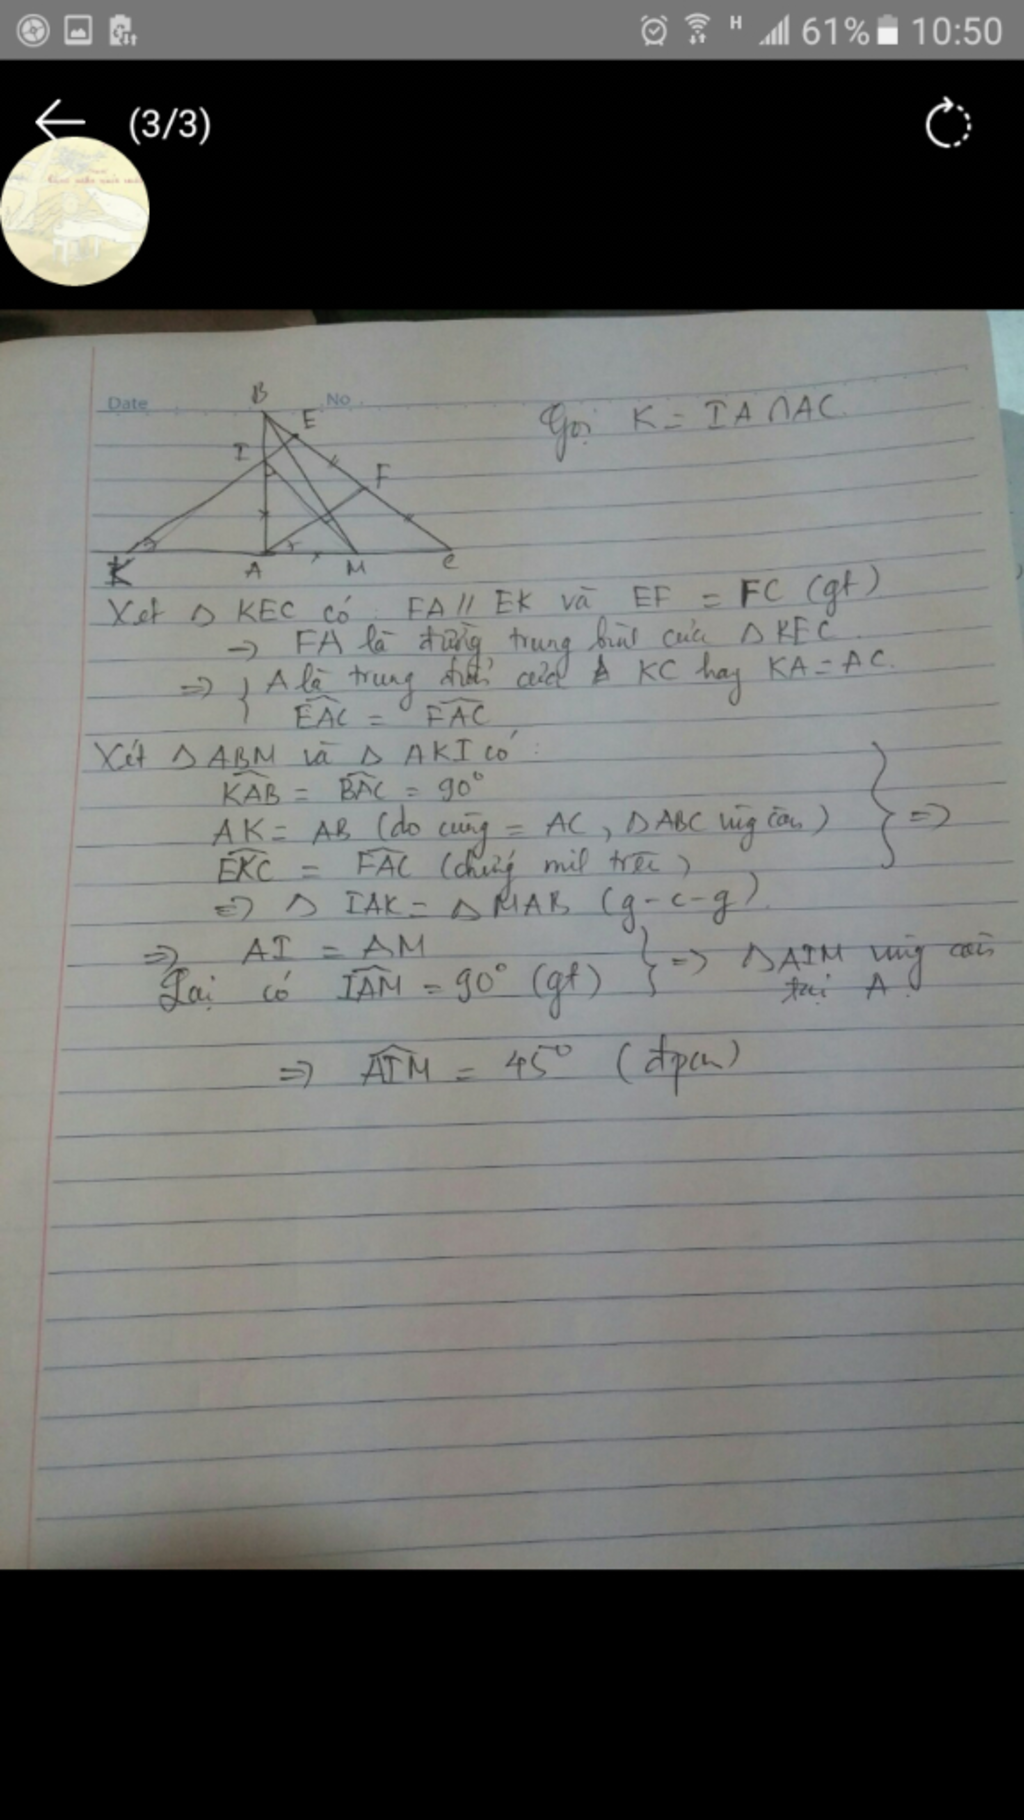 H 61% 10:50
(3/3)
Date No
B
E
I
F
K A M C
Gọi K = IA ∩ AC
Xét Δ KEC có FA // EK và EF = FC (gt)
→ FA là đường trung bình của Δ KEC
=> } A là trung điểm của KC hay KA = AC.
EAC = FAC
Xét Δ ABM và Δ AKI có :
KAB = BAC = 90°
AK = AB (do cùng = AC, ΔABC vuông cân) } =>
EKC = FAC (chứng minh trên)
=> Δ IAK = Δ MAB (g-c-g).
=> AI = AM
Lại có IAM = 90° (gt) } => ΔAIM vuông cân
tại A.
=> AIM = 45° (đpcm)